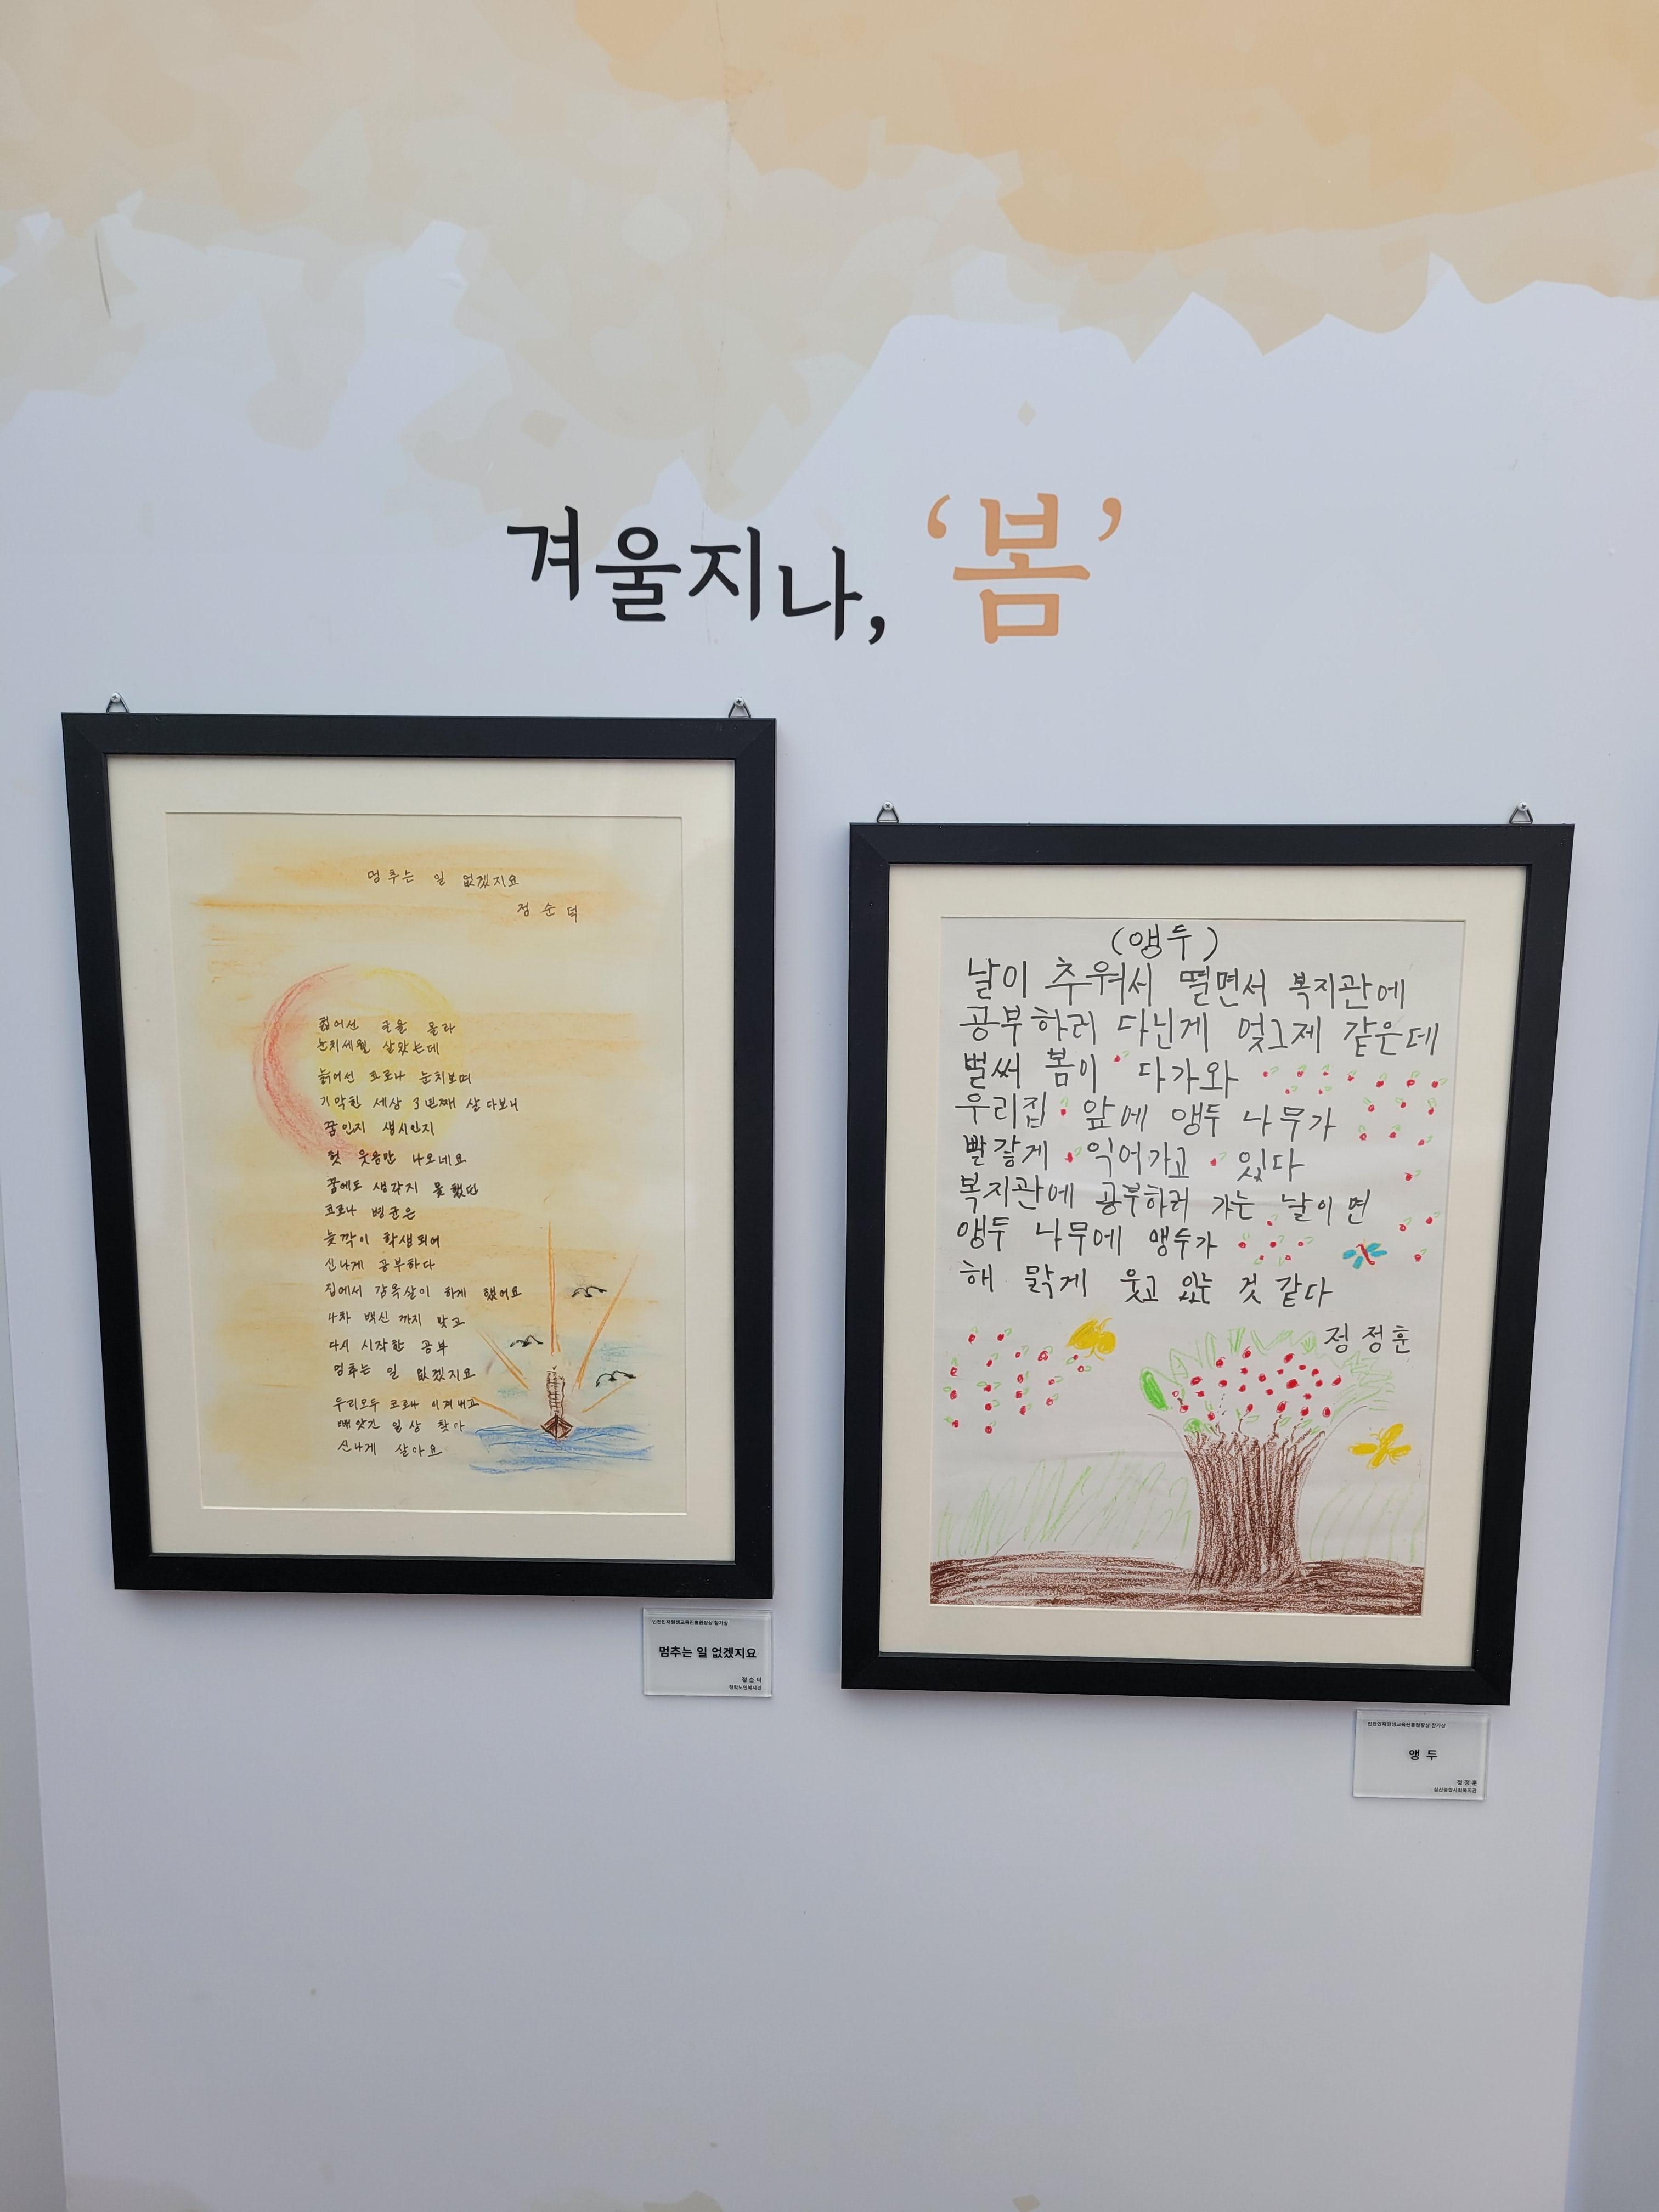 겨울지나, ‘봄’
멈추는 일 없겠지요
정순덕
젊어선 글을 몰라
눈치세월 살았는데
늙어선 코로나 눈치보며
기막힌 세상 3년째 살다보니
꿈인지 생시인지
헛 웃음만 나오네요
꿈에도 생각지 못했던
코로나 병균은
늦깍이 학생되어
신나게 공부하다
집에서 감옥살이 하게 했어요
4차 백신 까지 맞고
다시 시작한 공부
멈추는 일 없겠지요
우리모두 코로나 이겨내고
빼앗긴 일상 찾아
신나게 살아요
인천인재평생교육진흥원장상 참가상
멈추는 일 없겠지요
정순덕
(앵두)
날이 추워서 떨면서 복지관에
공부하러 다닌게 엊그제 같은데
벌써 봄이 다가와
우리집 앞에 앵두 나무가
빨갛게 익어가고 있다
복지관에 공부하러 가는 날이면
앵두 나무에 앵두가
해 맑게 웃고 있는 것 같다
정정훈
인천인재평생교육진흥원장상 참가상
앵 두
정정훈